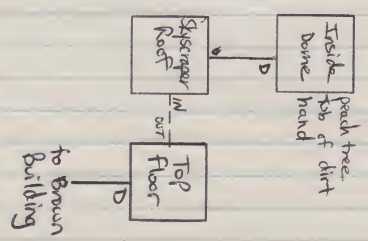 Inside
Dome
peach tree
tub of dirt
hand
D
Skyscraper
Roof
IN
OUT
Top
Floor
D
to Brown
building